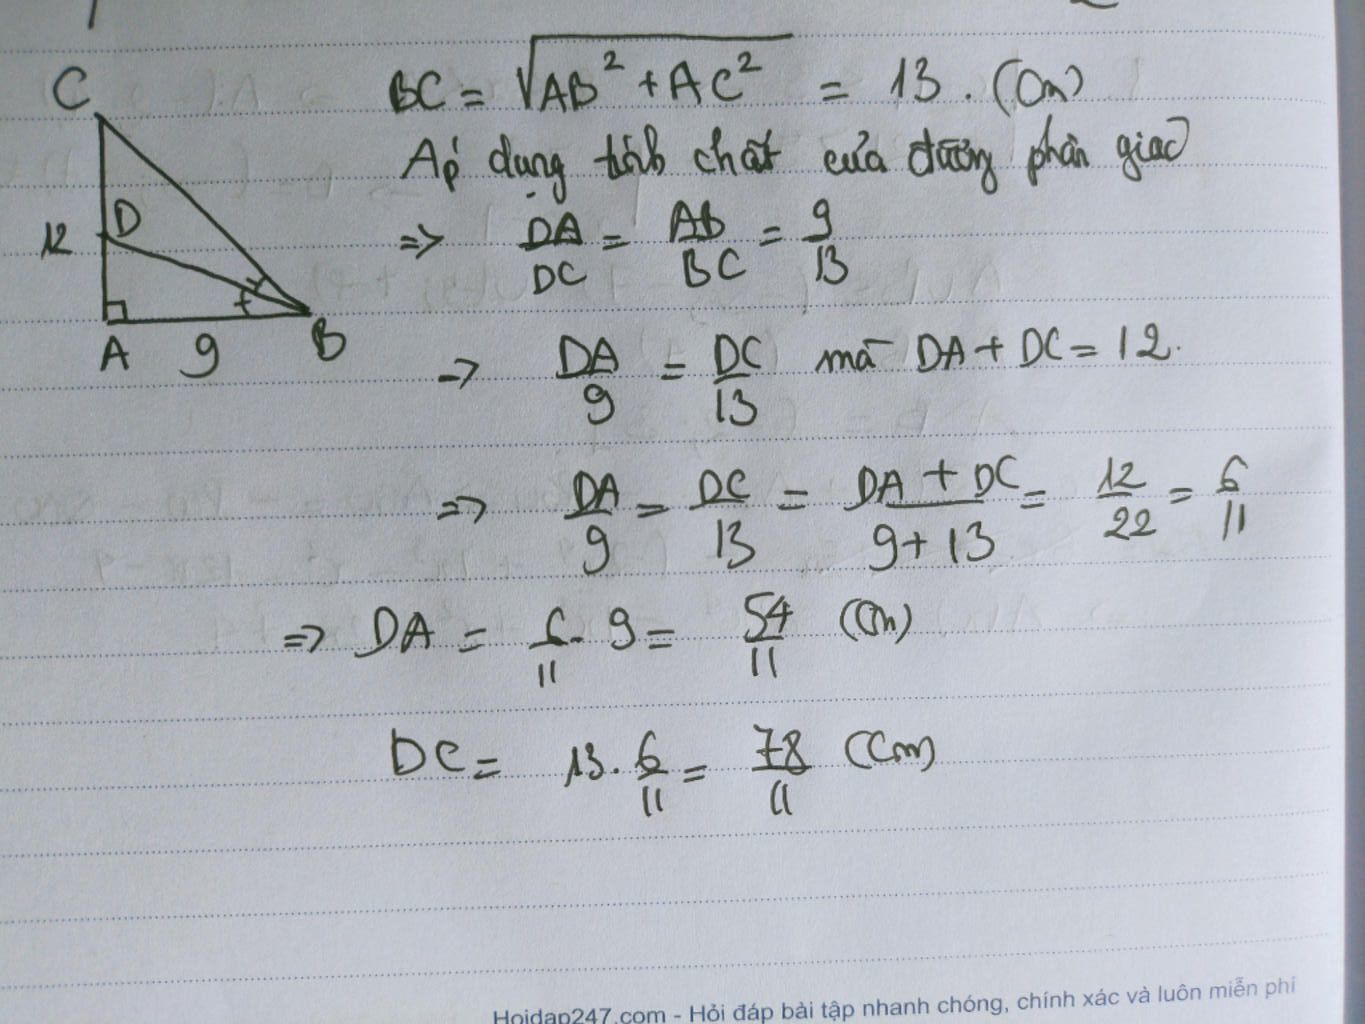 C
12
D
A
9
B
BC = √AB² + AC² = 13 . (Cm)
Áp dụng tính chất của đường phân giác
=> DA/DC = AB/BC = 9/13
=> DA/9 = DC/13 mà DA + DC = 12.
=> DA/9 = DC/13 = DA + DC/9 + 13 = 12/22 = 6/11
=> DA = 6/11 . 9 = 54/11 (Cm)
DC = 13 . 6/11 = 78/11 (Cm)
Hoidap247.com - Hỏi đáp bài tập nhanh chóng, chính xác và luôn miễn phí